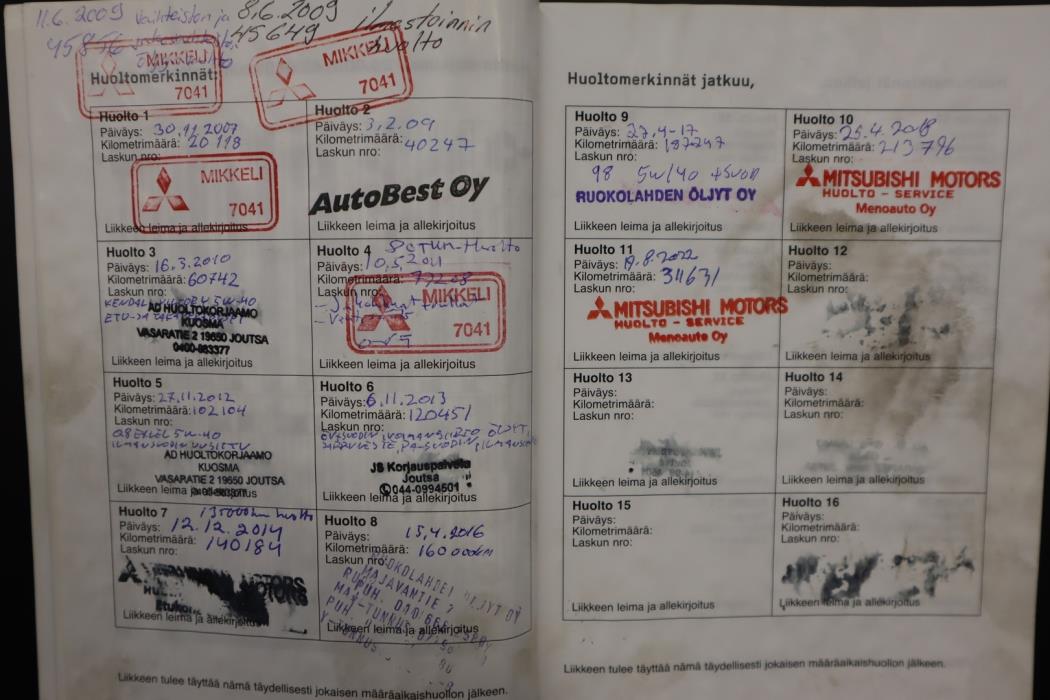 11.6.2009 Vaihteiston ja 8.6.2009 ilmastoinnin
45856 45649 huolto
Huoltomerkinnät:
MIKKELI
7041
MIKKELI
7041
Huolto 1
Päiväys: 30.11.2007
Kilometrimäärä: 20118
Laskun nro:
MIKKELI
7041
Liikkeen leima ja allekirjoitus
Huolto 2
Päiväys: 3.2.09
Kilometrimäärä: 40247
Laskun nro:
AutoBest Oy
Liikkeen leima ja allekirjoitus
Huolto 3
Päiväys: 16.3.2010
Kilometrimäärä: 60742
Laskun nro:
5W-40
AD HUOLTOKORJAAMO
KUOSMA
VASARATIE 2 19650 JOUTSA
0400-883377
Liikkeen leima ja allekirjoitus
Huolto 4
Päiväys: 10.5.2011
Kilometrimäärä:
Laskun nro:
MIKKELI
7041
Liikkeen leima ja allekirjoitus
Huolto 5
Päiväys: 27.11.2012
Kilometrimäärä: 102104
Laskun nro:
Q8 5W-40
AD HUOLTOKORJAAMO
KUOSMA
VASARATIE 2 19650 JOUTSA
Liikkeen leima ja allekirjoitus
Huolto 6
Päiväys: 6.11.2013
Kilometrimäärä: 120451
Laskun nro:
JS Korjauspalvelu
Joutsa
044-0994501
Liikkeen leima ja allekirjoitus
Huolto 7 135000km huolto
Päiväys: 12.12.2014
Kilometrimäärä: 140184
Laskun nro:
MOTORS
Liikkeen leima ja allekirjoitus
Huolto 8
15.4.2016
Kilometrimäärä: 160000km
Laskun nro:
RUOKOLAHDEN ÖLJYT OY
MAJAVANTIE 2
Liikkeen leima ja allekirjoitus
Liikkeen tulee täyttää nämä täydellisesti jokaisen määräaikaishuollon jälkeen.
Huoltomerkinnät jatkuu,
Huolto 9
Päiväys: 27.4-17
Kilometrimäärä: 187247
Laskun nro:
98 5W/40 +Suod
RUOKOLAHDEN ÖLJYT OY
Liikkeen leima ja allekirjoitus
Huolto 10
Päiväys: 25.4.2018
Kilometrimäärä: 213796
Laskun nro:
MITSUBISHI MOTORS
HUOLTO - SERVICE
Menoauto Oy
Liikkeen leima ja allekirjoitus
Huolto 11
Päiväys: 19.8.2022
Kilometrimäärä: 311631
Laskun nro:
MITSUBISHI MOTORS
HUOLTO - SERVICE
Menoauto Oy
Liikkeen leima ja allekirjoitus
Huolto 12
Päiväys:
Kilometrimäärä:
Laskun nro:
Liikkeen leima ja allekirjoitus
Huolto 13
Päiväys:
Kilometrimäärä:
Laskun nro:
Liikkeen leima ja allekirjoitus
Huolto 14
Päiväys:
Kilometrimäärä:
Laskun nro:
Liikkeen leima ja allekirjoitus
Huolto 15
Päiväys:
Kilometrimäärä:
Laskun nro:
Liikkeen leima ja allekirjoitus
Huolto 16
Päiväys:
Kilometrimäärä:
Laskun nro:
Liikkeen leima ja allekirjoitus
Liikkeen tulee täyttää nämä täydellisesti jokaisen määräaikaishuollon jälkeen.